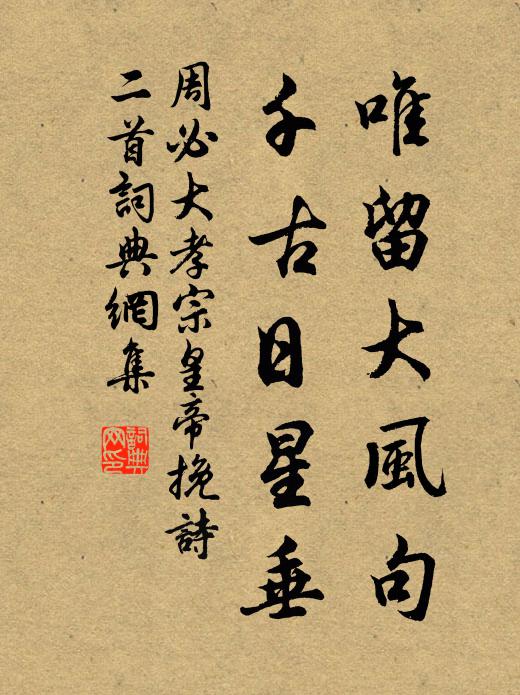 唯留大風句
千古日星垂
周必大孝宗皇帝挽詩
二首詞典網集
詞典網印